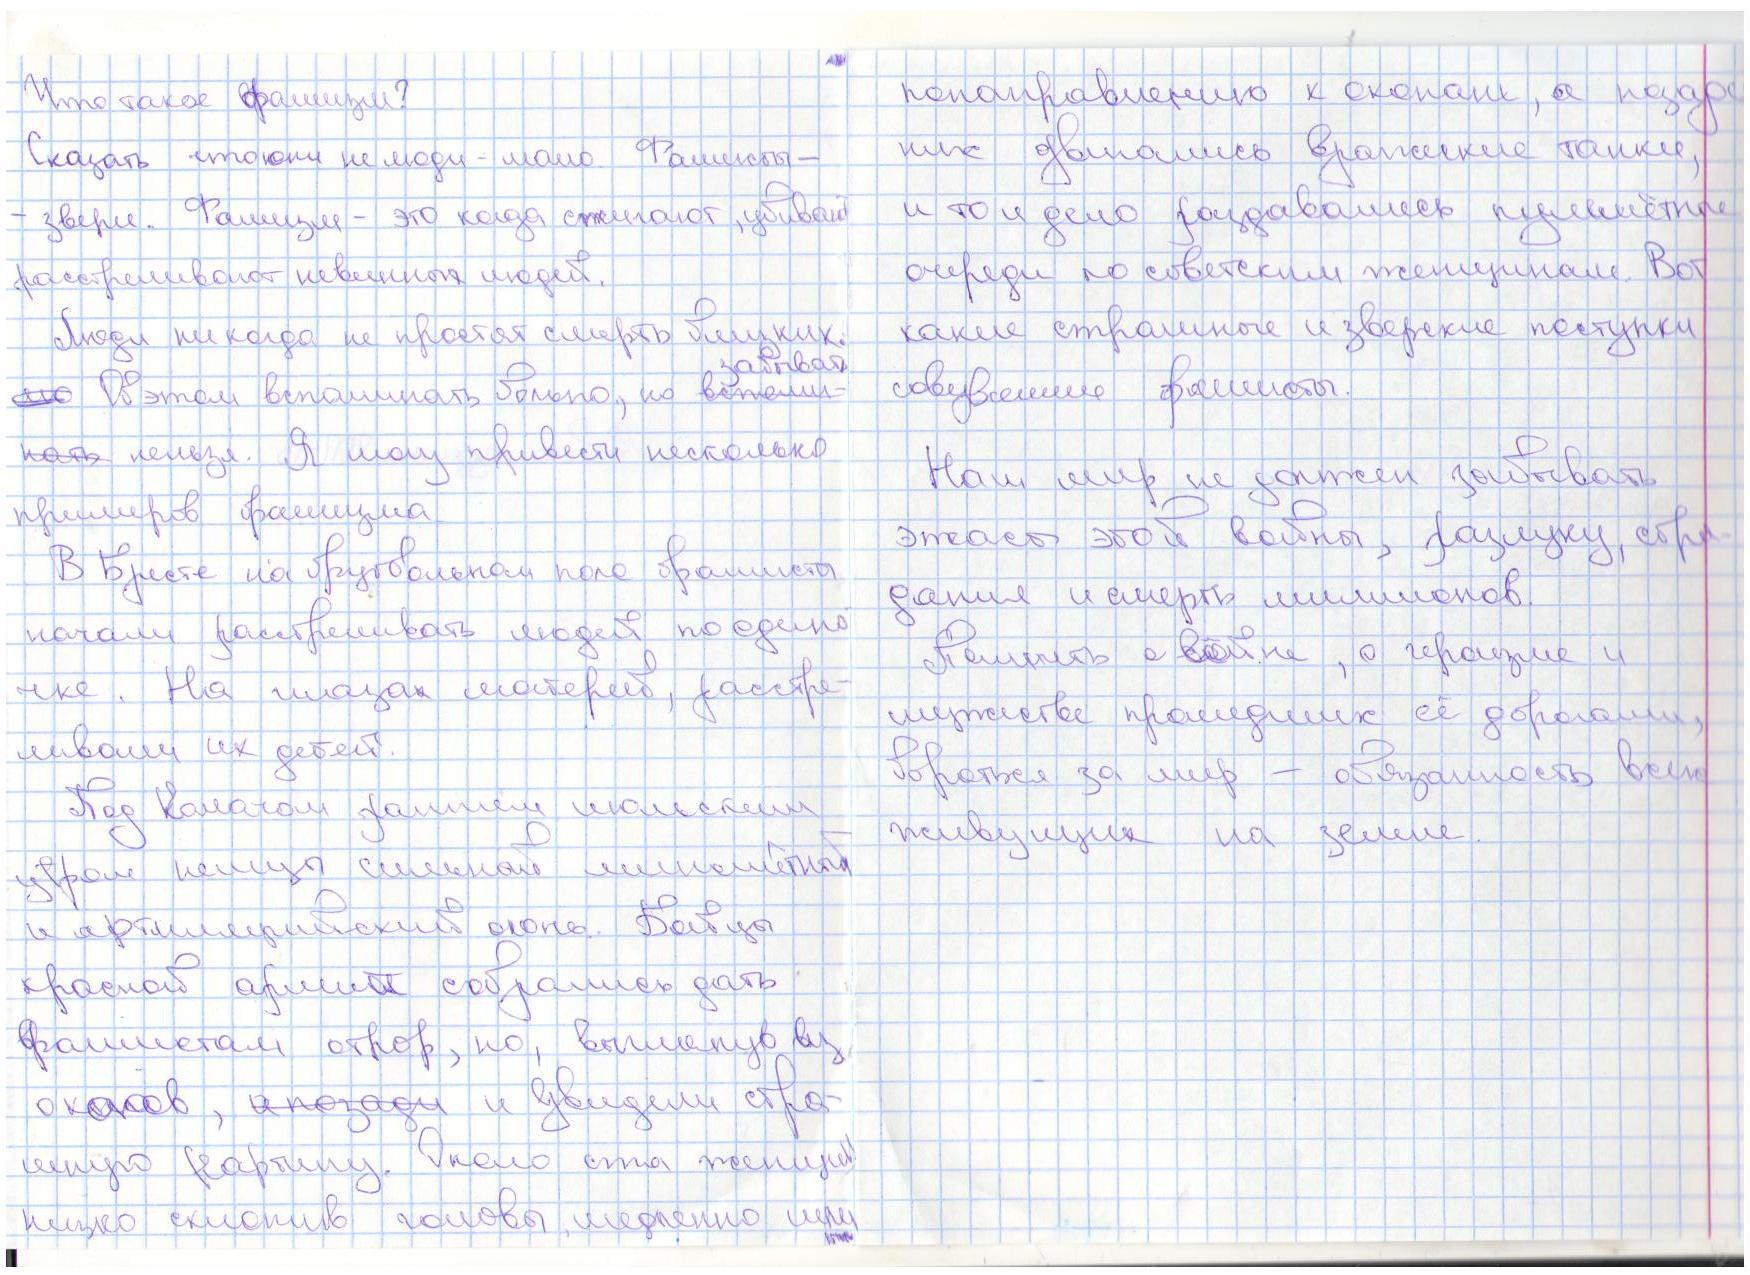 Что такое фашизм?
Сказать что они не люди - мало. Фашисты -
- звери. Фашизм - это когда сжигают, убивают
расстреливают невинных людей.
Люди никогда не простят смерть близких.
забывать
Об этом вспоминать больно, но вспоми-
нать нельзя. Я могу привести несколько
примеров фашизма
В Бресте на футбольном поле фашисты
начали расстреливать людей по едино
чке. На глазах матерей, расстре-
ливали их детей.
Под Калачом ранним июльским
утром немцы сильный миномётный
и артиллерийский огонь. Бойцы
красной армии собрались дать
фашистам отпор, но, выглянув из
окопов, а позади и увидели стра-
шную картину. Около ста женщин
низко склонив головы, медленно шли
по направлению к окопам, а позади
них двигались вражеские танки,
и то и дело раздавались пулемётные
очереди по советским женщинам. Вот
какие страшные и зверские поступки
совершали фашисты.
Наш мир не должен забывать
ужасы этой войны, разлуку, стра-
дания и смерть миллионов.
Помнить о войне, о героизме и
мужестве прошедших её дорогами,
бороться за мир - обязанность всех
живущих на земле.